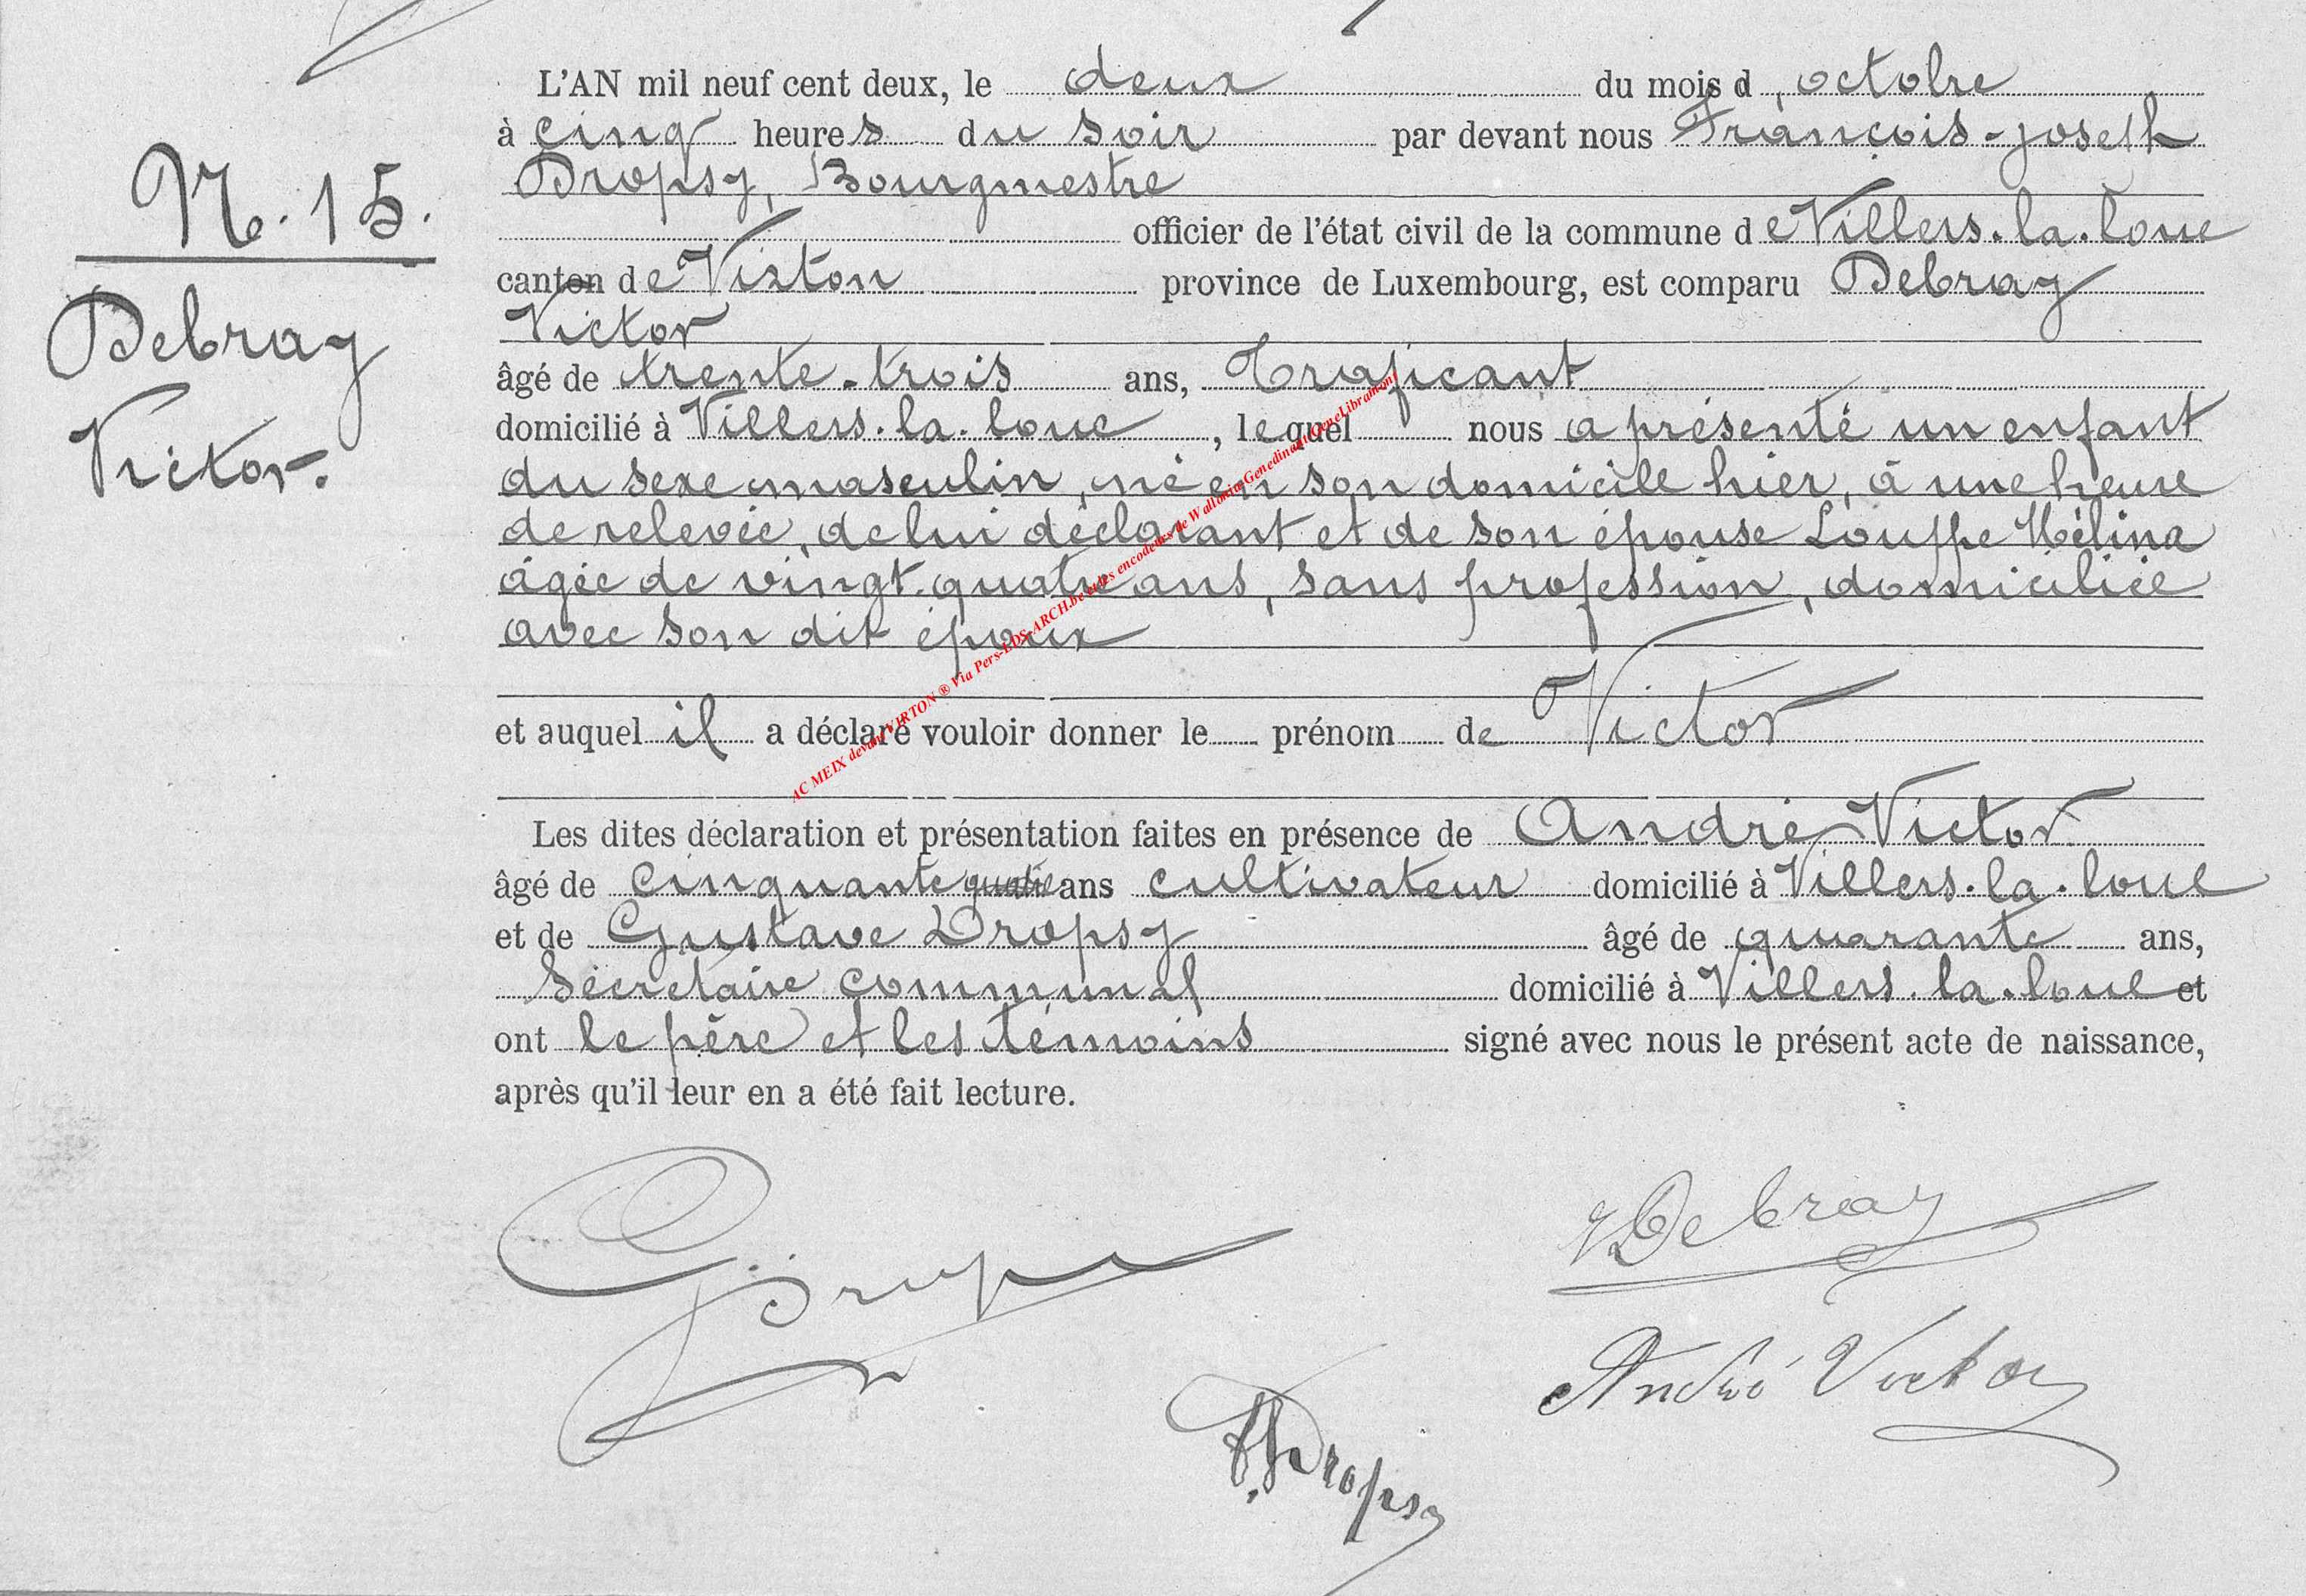 N. 15.
Debray
Victor.
L'AN mil neuf cent deux, le deux du mois d'octobre
à cinq heures du soir par devant nous François-Joseph
Dropsy, Bourgmestre
officier de l'état civil de la commune de Villers-la-loue
canton de Virton province de Luxembourg, est comparu Debray
Victor
âgé de trente-trois ans, Traficant
domicilié à Villers-la-loue, lequel nous a présenté un enfant
du sexe masculin, né en son domicile hier, à une heure
de relevée, de lui déclarant et de son épouse Louppe Mélina
âgée de vingt-quatre ans, sans profession, domiciliée
avec son dit époux
et auquel il a déclaré vouloir donner le prénom de Victor
Les dites déclaration et présentation faites en présence de André Victor
âgé de cinquante quatre ans cultivateur domicilié à Villers-la-loue
et de Gustave Dropsy âgé de quarante ans,
Secrétaire communal domicilié à Villers-la-loue et
ont le père et les témoins signé avec nous le présent acte de naissance,
après qu'il leur en a été fait lecture.
VDebray
André Victor
Dropsy
AC MEIX devant VIRTON ® Via Pers-LDS-ARCH.be et les encodeurs de Wallonia-Genedinant-GeneLibramont